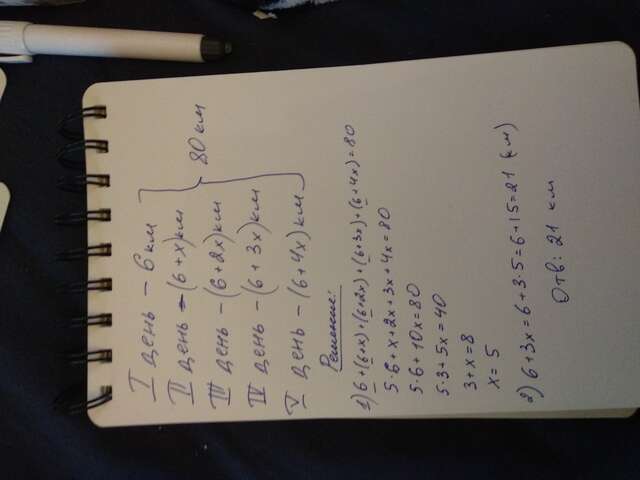 I день - 6 км
II день - (6+x) км
III день - (6+2x) км
IV день - (6+3x) км
V день - (6+4x) км
80 км
Решение:
1) 6+(6+x)+(6+2x)+(6+3x)+(6+4x)=80
5·6+x+2x+3x+4x=80
5·6+10x=80
5·3+5x=40
3+x=8
x=5
2) 6+3x=6+3·5=6+15=21 (км)
Отв: 21 км